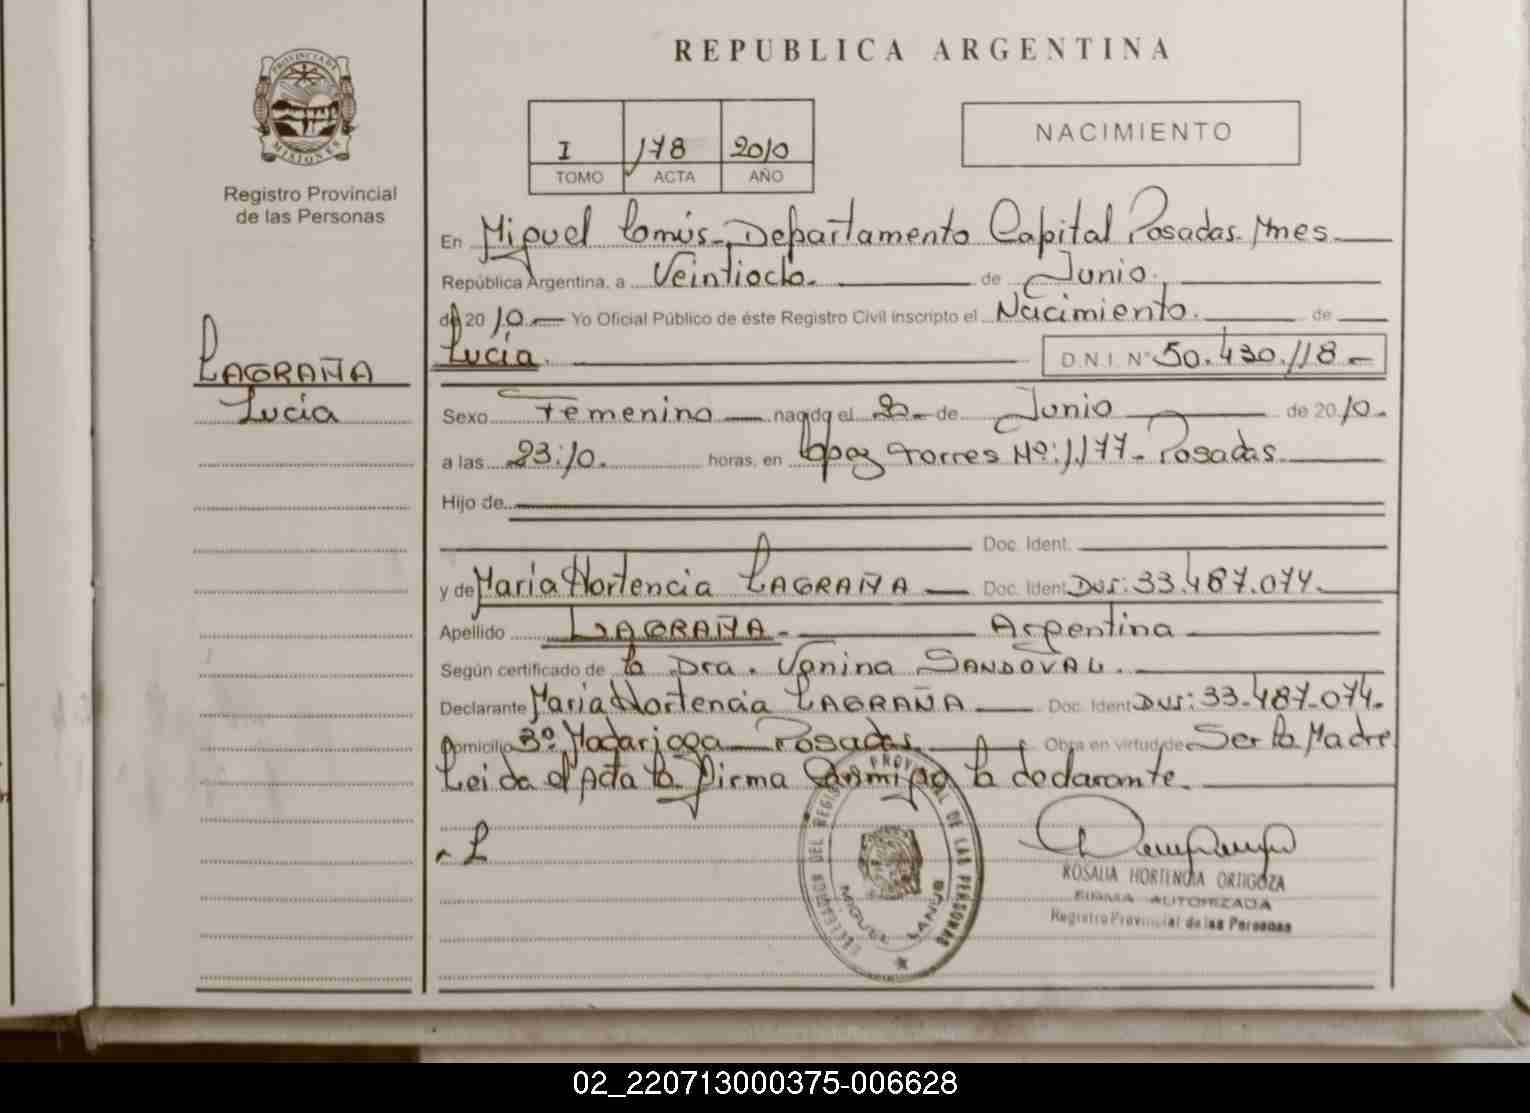 REPUBLICA ARGENTINA
PROVINCIA DE MISIONES
Registro Provincial
de las Personas
I 178 2010
TOMO ACTA AÑO
NACIMIENTO
En Miguel Lanús - Departamento Capital Posadas. Mnes
República Argentina, a Veintiocho. de Junio.
de 2010.- Yo Oficial Público de éste Registro Civil inscripto el Nacimiento. de
Lucía. D.N.I. N° 50.430.118.-
LAGRAÑA
Lucía
Sexo Femenino nacido el de Junio de 2010.
a las 23:10. horas, en López Torres Nº: 1177- Posadas.
Hijo de
Doc. Ident.
y de María Hortencia LAGRAÑA Doc. Ident. DNI: 33.487.074.
Apellido LAGRAÑA.- Argentina
Según certificado de la Dra. Vanina SANDOVAL.
Declarante María Hortencia LAGRAÑA Doc. Ident. DNI: 33.487.074.
Domicilio Bº Madariaga Posadas. Obra en virtud de Ser la Madre
Leida el Acta la firma conmigo la declarante.
L
DELEGACION DEL REGISTRO PROVINCIAL DE LAS PERSONAS
MIGUEL LANUS
ROSALIA HORTENCIA ORTIGOZA
FIRMA AUTORIZADA
Registro Provincial de las Personas
02_220713000375-006628